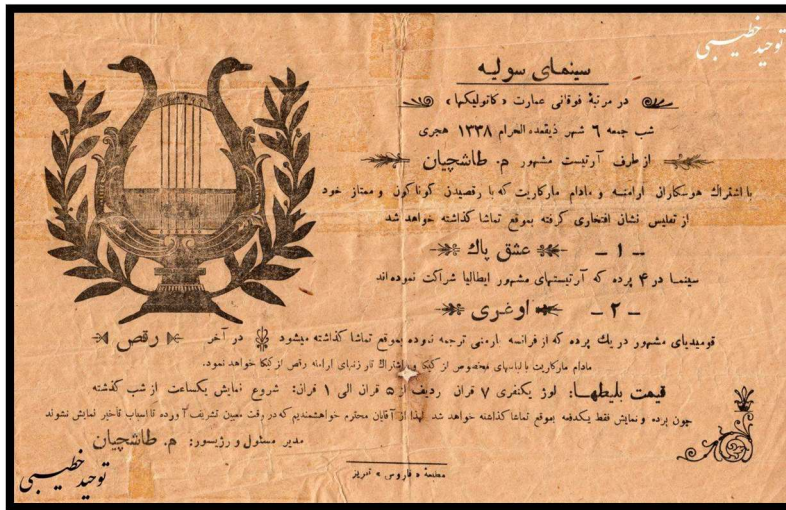 توحید خطیبی
سینمای سولیه
در مرتبهٔ فوقانی عمارت «کاتولیکها»
شب جمعه ٦ شهر ذیقعده الحرام ١٣٣٨ هجری
از طرف آرتیست مشهور م. طاشچیان
با اشتراك هوسکاران ارامنه و مادام مارکاریت که با رقصیدن کوناکون و ممتاز خود
از تفلیس نشان افتخاری کرفته بموقع تماشا کذاشته خواهد شد
— ١ — عشق پاك
سینما در ۴ پرده که آرتیستهای مشهور ایطالیا شراکت نموده اند
— ٢ — اوغری
قومیدیای مشهور در یك پرده که از فرانسه بارمنی ترجمه نموده بموقع تماشا کذاشته میشود در آخر رقص
مادام مارکاریت با لباسهای مخصوص از کیك اشتراك تار زنهای ارامنه رقص از کیکا خواهد نمود.
قیمت بلیطها: لوژ یکنفری ٧ قران ردیف از ٥ قران الی ١ قران: شروع نمایش یکساعت از شب کذشته
چون پرده و نمایش فقط یکدفعه بموقع تماشا کذاشته خواهد شد لهذا از آقایان محترم خواهشمندیم که در وقت معین تشریف آورده تا اسباب تأخیر نمایش نشوند
مدیر مسئول و رژیسور: م. طاشچیان
مطبعهٔ «فاروس» تبریز
توحید خطیبی